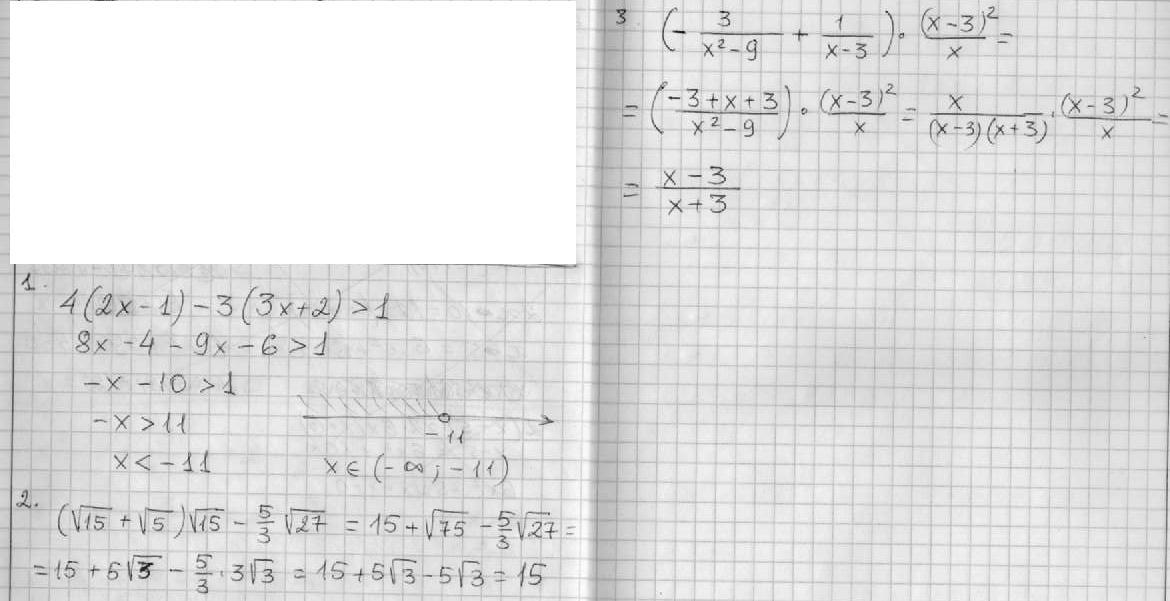 1.
4(2x-1)-3(3x+2)>1
8x-4-9x-6>1
-x-10>1
-x>11
x<-11
-11
x∈(-∞;-11)
2.
(√15+√5)√15-5/3√27=15+√75-5/3√27=
=15+5√3-5/3·3√3=15+5√3-5√3=15
3
(-3/(x²-9)+1/(x-3))·(x-3)²/x=
=((-3+x+3)/(x²-9))·(x-3)²/x=x/((x-3)(x+3))·(x-3)²/x=
=(x-3)/(x+3)